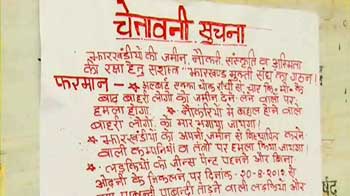 चेतावनी सूचना
झारखंडीयों की जमीन, नौकरी, संस्कृति व अस्मिता
की रक्षा हेतु सशस्त्र "झारखण्ड मुक्ती संघ का गठन।
फरमान -
बाद बाहरी लोगों को जमीन देने लेने वालों पर
हमला होगा * नौकरियों में बहाल होने वाले
बाहरी लोगों को मार भगाया जाएगा।
* झारखंडीयों को अपनी जमीन से विस्थापित करने
वाली कम्पनियों व नेतों पर हमला किया जाएगा
* लड़कियों को जीन्स पेन्ट पहनने और बिना
ओढ़नी के निकलने पर दिनांक - 20-8-2012 से
पाबन्दी तोड़ने वाली लड़कियों और